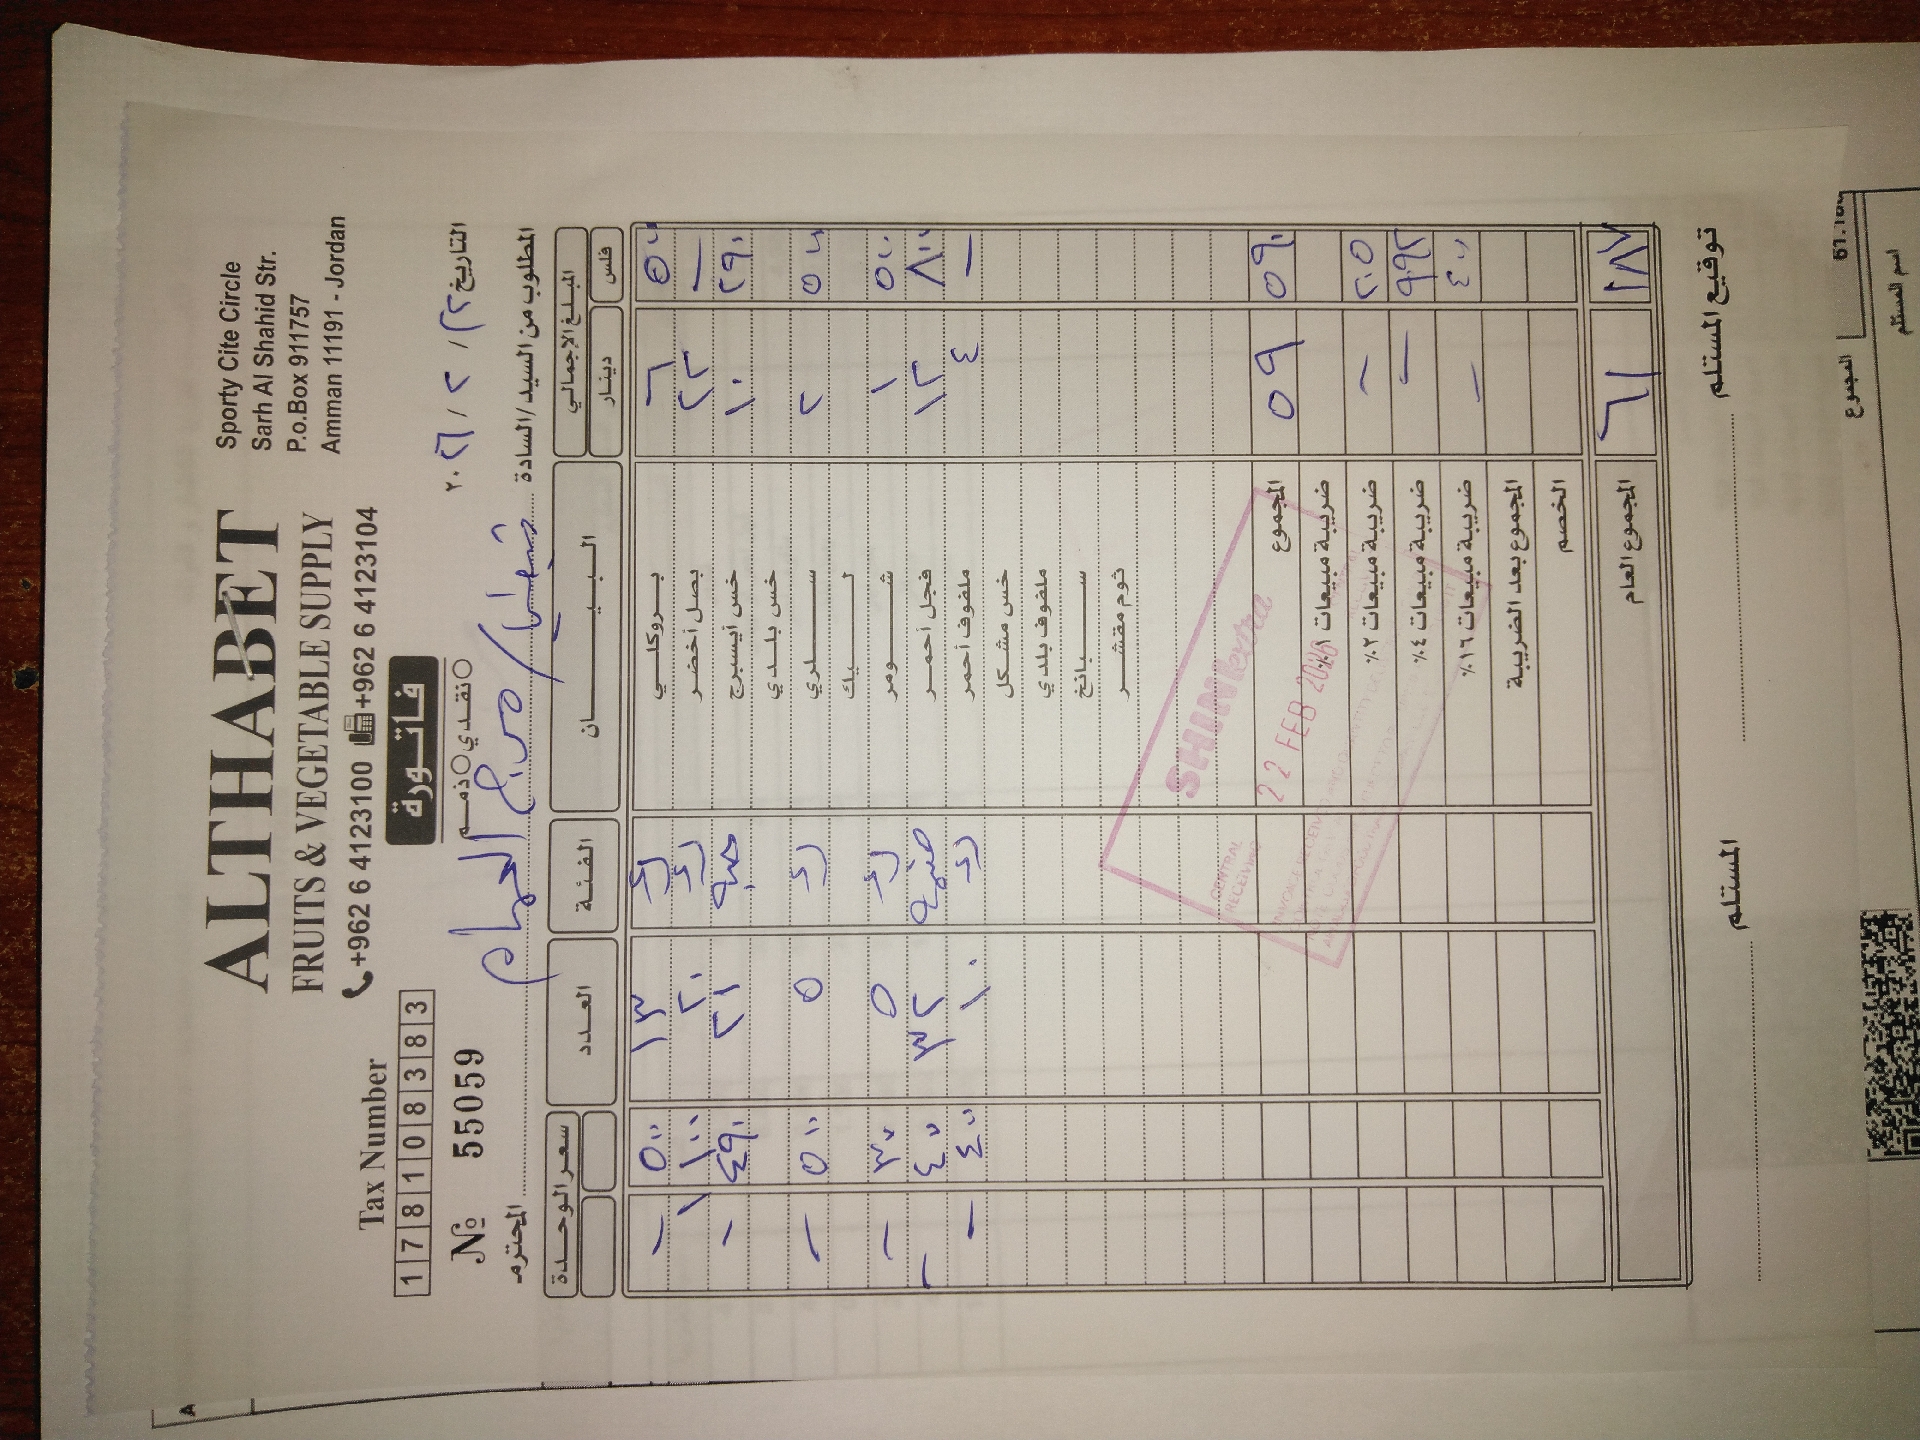 ALTHABET
FRUITS & VEGETABLE SUPPLY
+962 6 4123100 +962 6 4123104
Sporty Cite Circle
Sarh Al Shahid Str.
P.o.Box 911757
Amman 11191 - Jordan
Tax Number
178108383
فاتورة
نقدي ذمم
№ 55059
التاريخ ٢٢ / ٢ / ٢٠٢٦
المطلوب من السيد/السادة المحترم
المبلغ الإجمالي البيــــان الفئة العدد سعر الوحدة
فلس دينار
٥٠٠ ٦ بروكلي ١٣ ٥٠٠ -
- ٢٢ بصل أخضر ٢٠ ١٠٠ ١
٢٩٠ ١٠ خس أيسبرج حبه ٢١ ٤٩٠ -
خس بلدي
٥٠٠ ٢ سلري ٥ ٥٠٠ -
ليك
٥٠٠ ١ شومر ٥ ٣٠٠ -
٨٠٠ ١٢ فجل أحمر ٣٢ ٤٠٠ -
- ٤ ملفوف أحمر ١٠ ٤٠٠ -
خس مشكل
ملفوف بلدي
سبانخ
ثوم مقشر
٥٩٠ ٥٩ المجموع
ضريبة مبيعات ١٪
٢٠٥ - ضريبة مبيعات ٢٪
٩٩٢ - ضريبة مبيعات ٤٪
٤٠٠ - ضريبة مبيعات ١٦٪
المجموع بعد الضريبة
الخصم
١٨٧ ٦١ المجموع العام
CENTRAL
RECEIVING
22 FEB 2026
توقيع المستلم
المستلم
المجموع
اسم المستلم
A